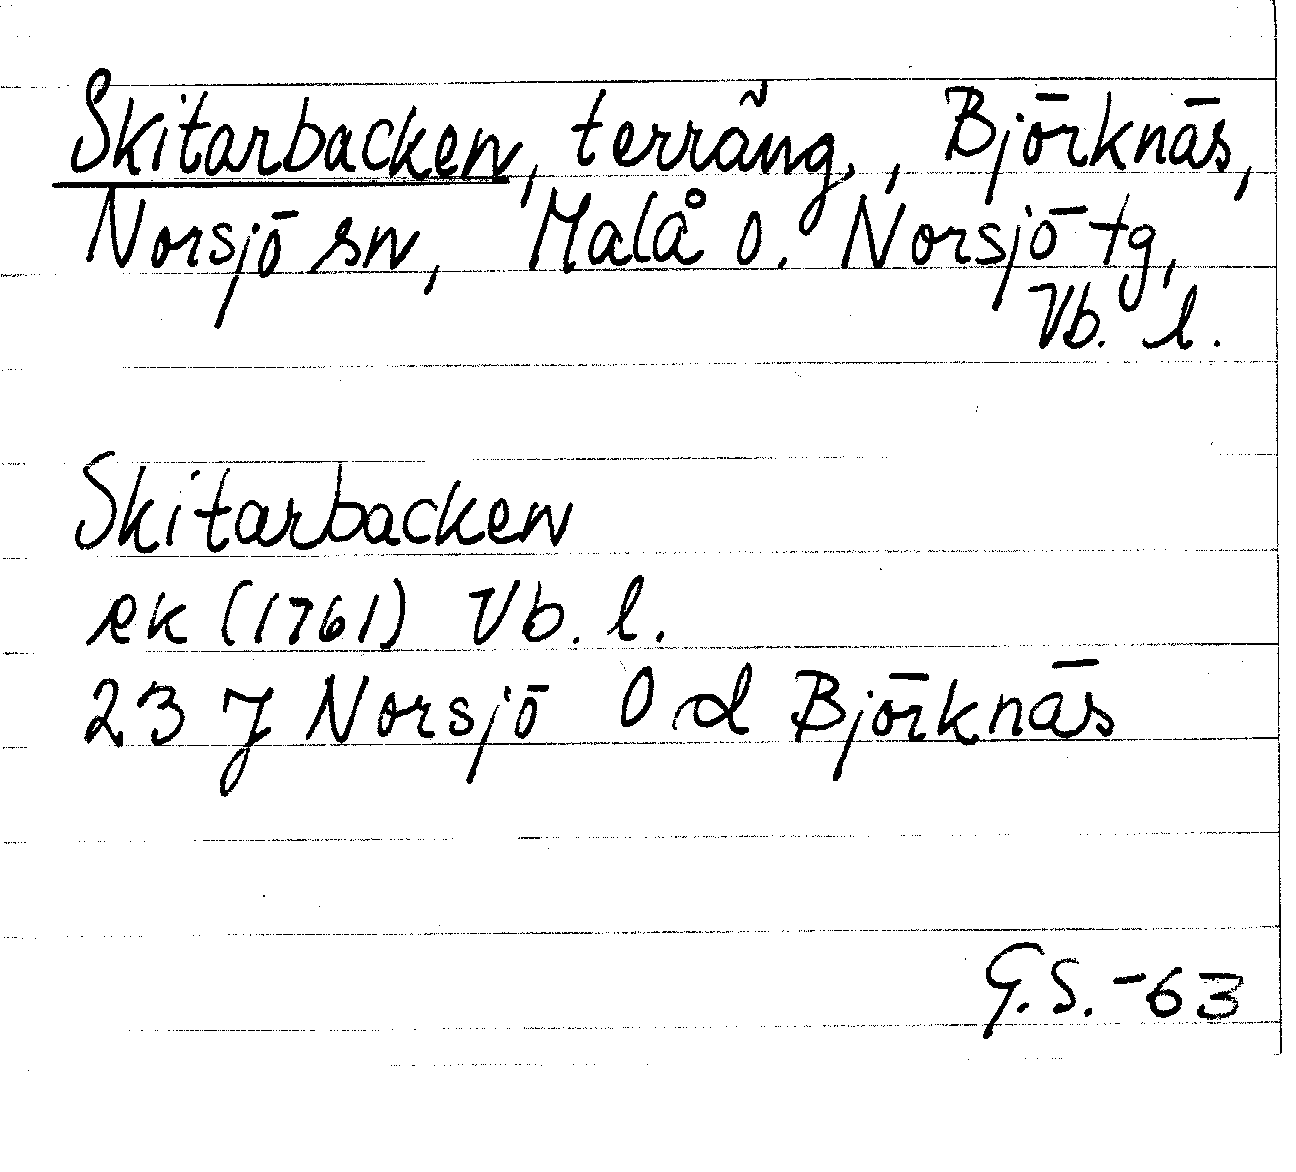 Skitarbacken, terräng, Björknäs,
Norsjö sn, Malå o. Norsjö tg,
Vb. l.
Skitarbacken
ek (1761) Vb. l.
23 J Norsjö O d Björknäs
G.S. -63